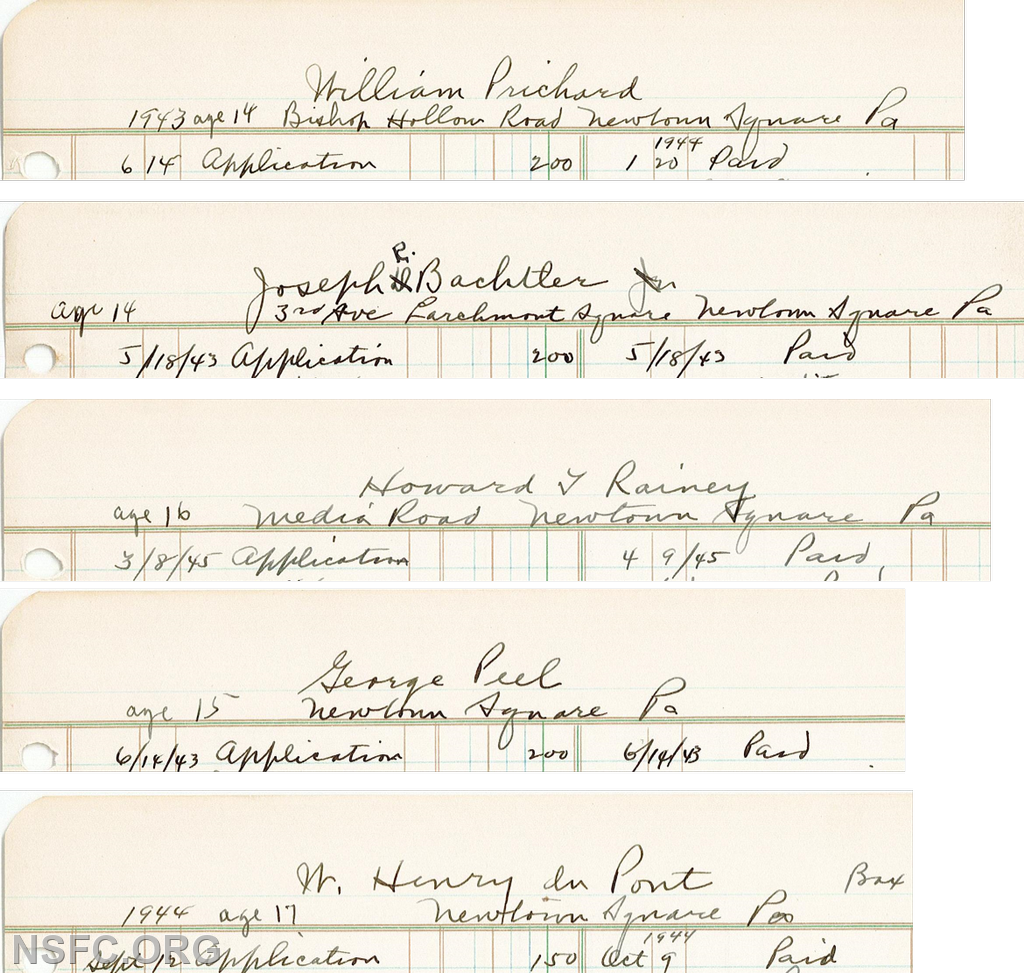 William Prichard
1943 age 14 Bishop Hollow Road Newtown Square Pa
1944
6 14 Application 200 1 20 Paid
R.
Joseph Bachtler Jr
age 14 3rd Ave Larchmont Square Newtown Square Pa
5/18/43 Application 200 5/18/43 Paid
Howard T Rainey
age 16 Media Road Newtown Square Pa
3/8/45 Application 4 9/45 Paid
George Peel
age 15 Newtown Square Pa
6/14/43 Application 200 6/14/43 Paid
W. Henry du Pont Box
1944 age 17 Newtown Square Pa
1944
Sept 12 Application 150 Oct 9 Paid
NSFC.ORG